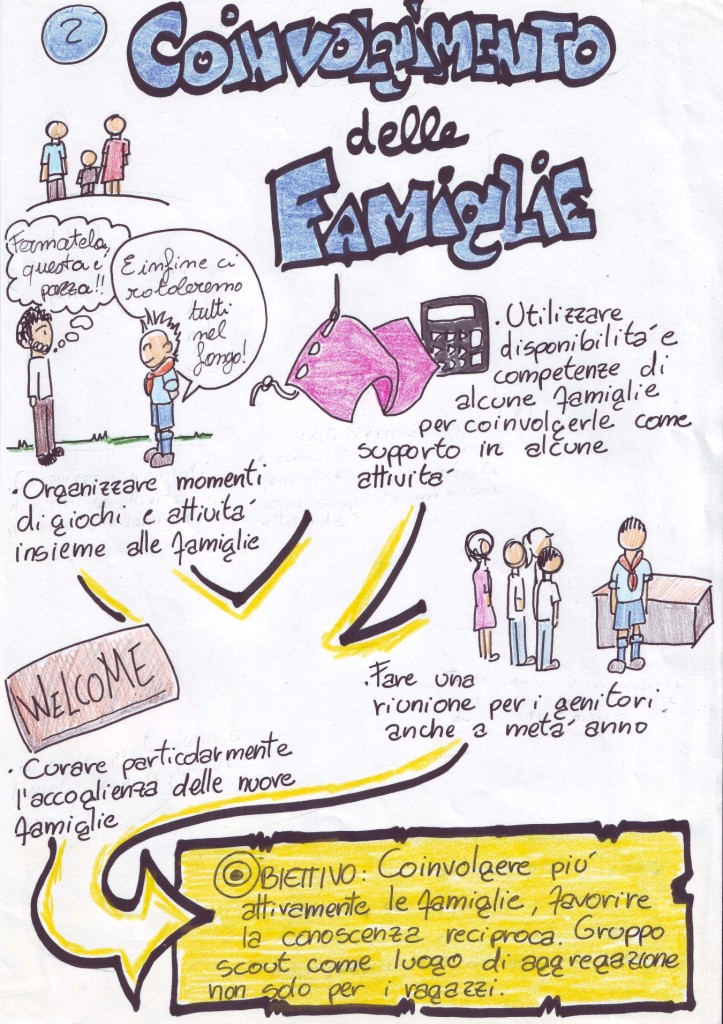 2
COINVOLGIMENTO
delle
FAMIGLIE
Fermatela,
questa è
pazza!!
E infine ci
rotoleremo
tutti
nel
fango!
· Utilizzare
disponibilità e
competenze di
alcune famiglie
per coinvolgerle come
supporto in alcune
attività
· Organizzare momenti
di giochi e attività
insieme alle famiglie
WELCOME
· Fare una
riunione per i genitori
anche a metà anno
· Curare particolarmente
l'accoglienza delle nuove
famiglie
OBIETTIVO: Coinvolgere più
attivamente le famiglie, favorire
la conoscenza reciproca. Gruppo
scout come luogo di aggregazione
non solo per i ragazzi.